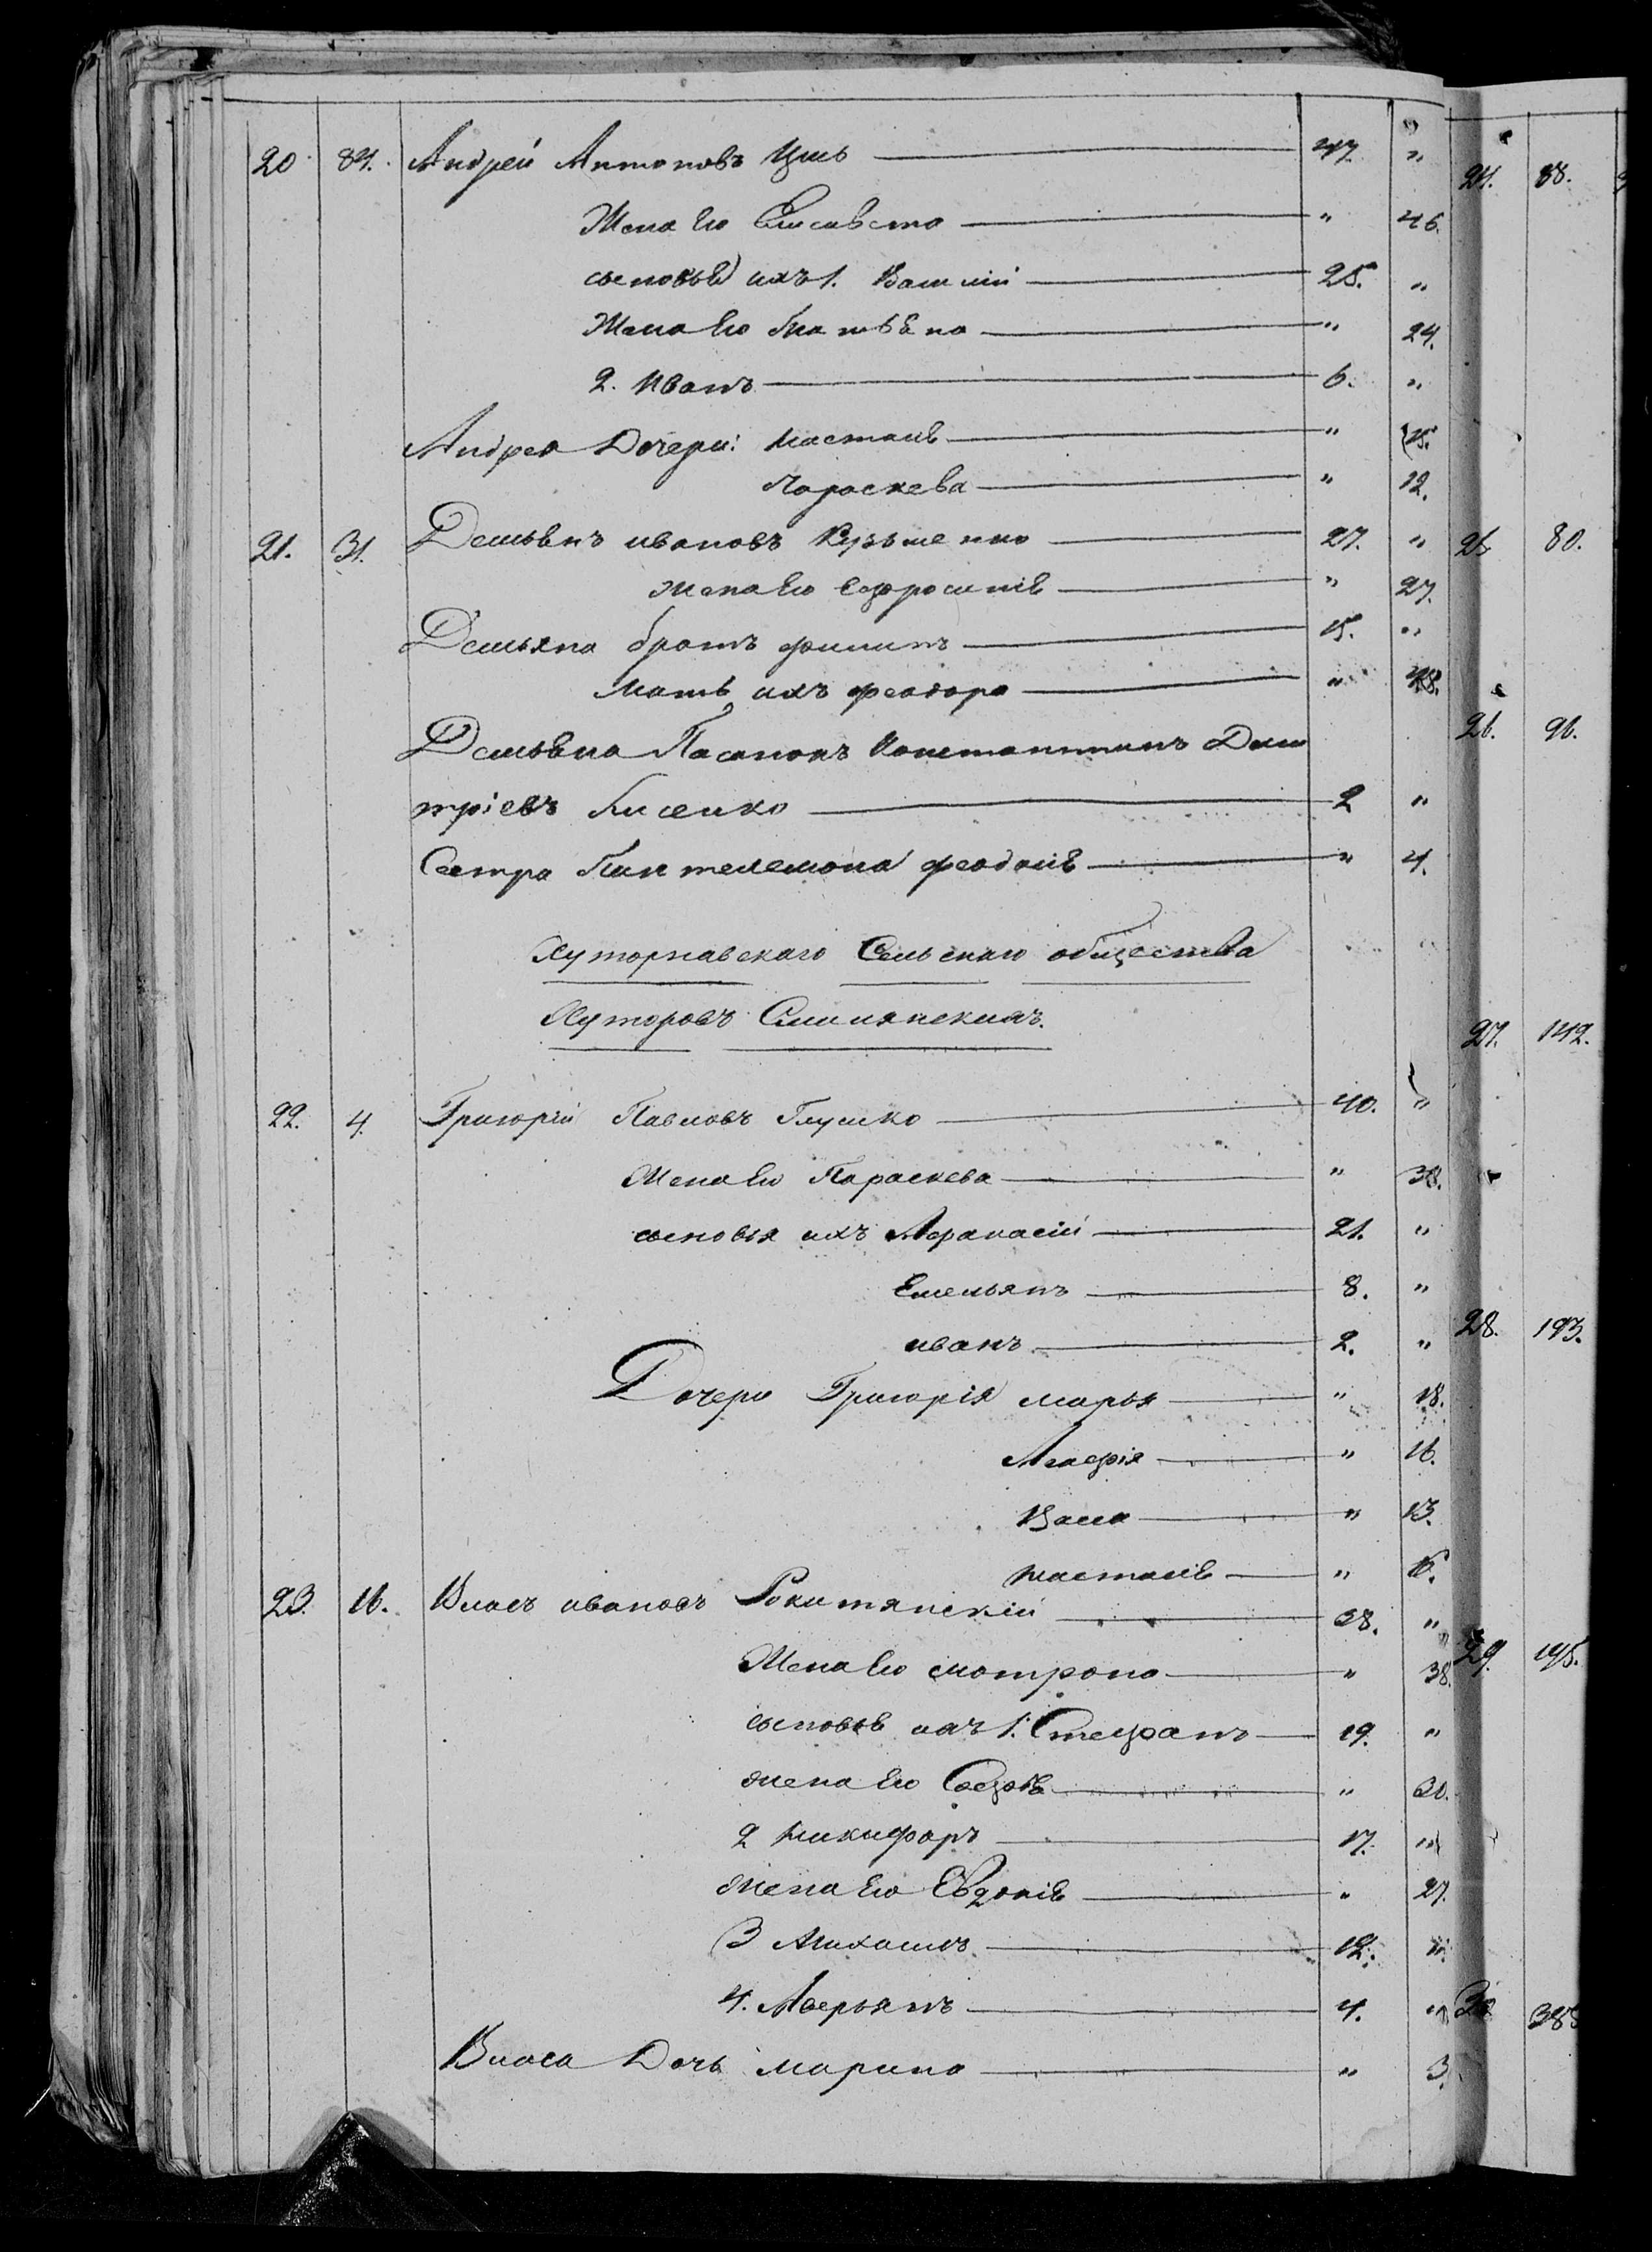 20. 84. Андрей Антоновъ Цысь — 47. "
Жена Его Елисавета — " 46.
сыновья ихъ 1. Василій — 25. "
Жена Его — " 24.
2. Иванъ — 6. "
Андрея Дочери: Настасія — " 15.
Параскева — " 12.
21. 31. Демьянъ ивановъ Кузьменко — 27. "
жена Его Ефросинія — " 27.
Демьяна братъ филипъ — 15. "
Мать ихъ феодора — " 48.
Демьяна Пасынокъ Константинъ Дми
тріевъ Лисенко — 2 "
Сестра Пантелемона феодосія — " 4.
Хуторнавскаго Сельскаго общества
Хуторовъ
22. 4. Григорій Павловъ Глушко — 40. "
Жена Его Параскева — " 38.
сыновья ихъ Афанасій — 21. "
Емельянъ — 8. "
иванъ — 2. "
Дочери Григорія марья — " 18.
Агафія — " 16.
Васса — " 13.
настасія — "
23. 16. Власъ ивановъ Рокитянскій — 38. "
Жена Его мотрона — " 38.
сыновья ихъ 1. Стефанъ — 19. "
жена Его Софія — " 20.
2 никифоръ — 17. "
жена Его Евдокія — " 27.
3 Михаилъ — 12. "
4. Аверьянъ — 4. "
Власа Дочь марина — " 3.
24. 88.
25. 80.
26. 96.
27. 142.
28. 193.
29. 195.
30. 383